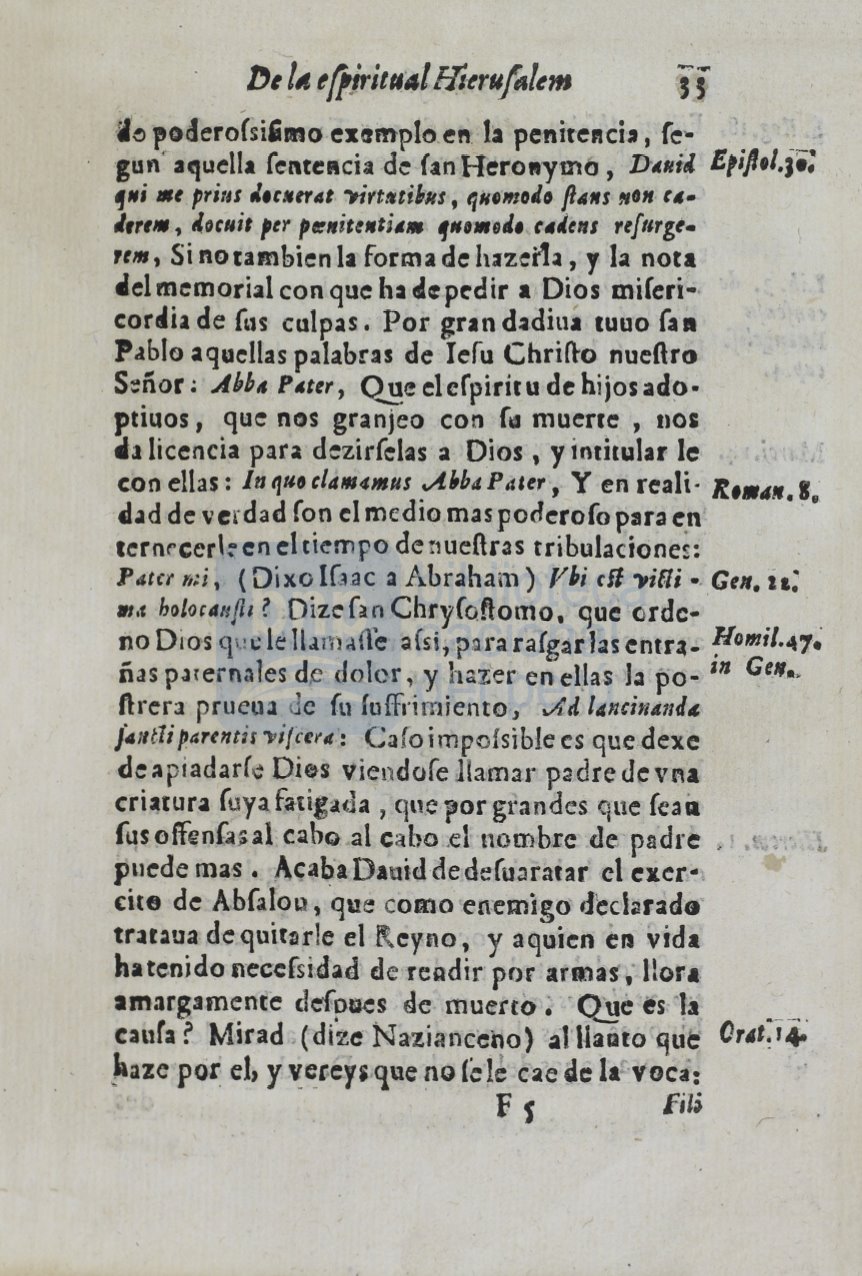 De la eſpiritual Hieruſalem 33
do poderoſsiſimo exemplo en la penitencia, ſe-
gun aquella ſentencia de ſan Heronymo, Dauid Epiſtol.30.
qui me prius docuerat virtutibus, quomodo ſtans non ca-
derem, docuit per pœnitentiam quomodo cadens reſurge-
rem, Si no tambien la forma de hazerla, y la nota
del memorial con que ha de pedir a Dios miſeri-
cordia de ſus culpas. Por gran dadiua tuuo ſan
Pablo aquellas palabras de Ieſu Chriſto nueſtro
Señor: Abba Pater, Que el eſpiritu de hijos ado-
ptiuos, que nos granjeo con ſu muerte, nos
da licencia para dezirſelas a Dios, y intitular le
con ellas: In quo clamamus Abba Pater, Y en reali- Roman.8.
dad de verdad ſon el medio mas poderoſo para en
ternecerle en el tiempo de nueſtras tribulaciones:
Pater mi, (Dixo Iſaac a Abraham) Vbi eſt victi- Gen. 22.
ma holocauſti? Dize ſan Chryſoſtomo, que orde-
no Dios que le llamaſſe aſsi, para raſgar las entra- Homil.47.
ñas paternales de dolor, y hazer en ellas la po- in Gen.
ſtrera prueua de ſu ſuffrimiento, Ad lancinanda
ſancti parentis viſcera: Caſo impoſsible es que dexe
de apiadarſe Dios viendoſe llamar padre de vna
criatura ſuya fatigada, que por grandes que ſean
ſus offenſas al cabo al cabo el nombre de padre
puede mas. Acaba Dauid de deſuaratar el exer-
cito de Abſalon, que como enemigo declarado
trataua de quitarle el Reyno, y aquien en vida
ha tenido neceſsidad de rendir por armas, llora
amargamente deſpues de muerto. Que es la
cauſa? Mirad (dize Nazianceno) al llanto que Orat.14.
haze por el, y vereys que no ſe le cae de la voca:
F 5 Fili